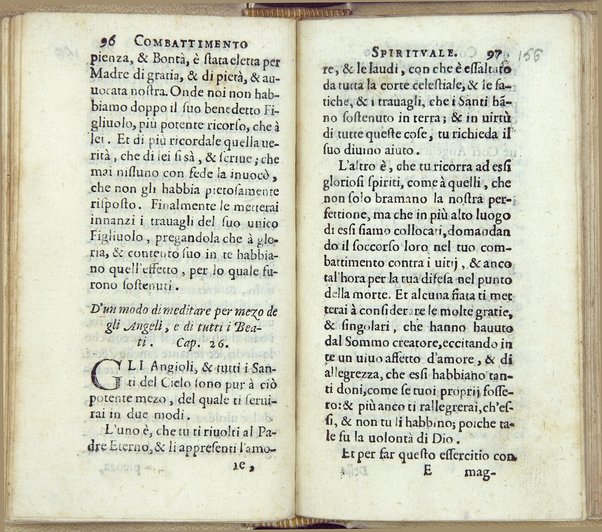 96 COMBATTIMENTO
pienza, & Bontà, è stata eletta per
Madre di gratia, & di pietà, & au-
uocata nostra. Onde noi non hab-
biamo doppo il suo benedetto Fi-
gliuolo, più potente ricorso, che à
lei. Et di più ricordale quella ue-
rità, che di lei si sà, & scriue; che
mai nissuno con fede la inuocò,
che non gli habbia pietosamente
risposto. Finalmente le metterai
innanzi i trauagli del suo unico
Figliuolo, pregandola che à glo-
ria, & contento suo in te habbia-
no quell'effetto, per lo quale fu-
rono sostenuti.
D'un modo di meditare per mezo de
gli Angeli, e di tutti i Bea-
ti. Cap. 26.
GLI Angioli, & tutti i San-
ti del Cielo sono pur à ciò
potente mezo, del quale ti serui-
rai in due modi.
L'uno è, che tu ti riuolti al Pa-
dre Eterno, & li appresenti l'amo-
re,
SPIRITVALE. 97
166
re, & le laudi, con che è essaltato
da tutta la corte celestiale, & le fa-
tiche, & i trauagli, che i Santi hā-
no sostenuto in terra; & in uirtù
di tutte queste cose, tu richieda il
suo diuino aiuto.
L'altro è, che tu ricorra ad essi
gloriosi spiriti, come à quelli, che
non solo bramano la nostra per-
fettione, ma che in più alto luogo
di essi siamo collocati, domandan-
do il soccorso loro nel tuo com-
battimento contra i uitij, & anco
tal'hora per la tua difesa nel punto
della morte. Et alcuna fiata ti met
terai à considerare le molte gratie,
& singolari, che hanno hauuto
dal Sommo creatore, eccitando in
te un uiuo affetto d'amore, & di
allegrezza, che essi habbiano tan-
ti doni, come se tuoi proprij fosse-
ro: & più anco ti rallegrerai, ch'es-
si, & non tu li habbino; poiche ta-
le fu la uolontà di Dio.
Et per far questo essercitio con
E mag-